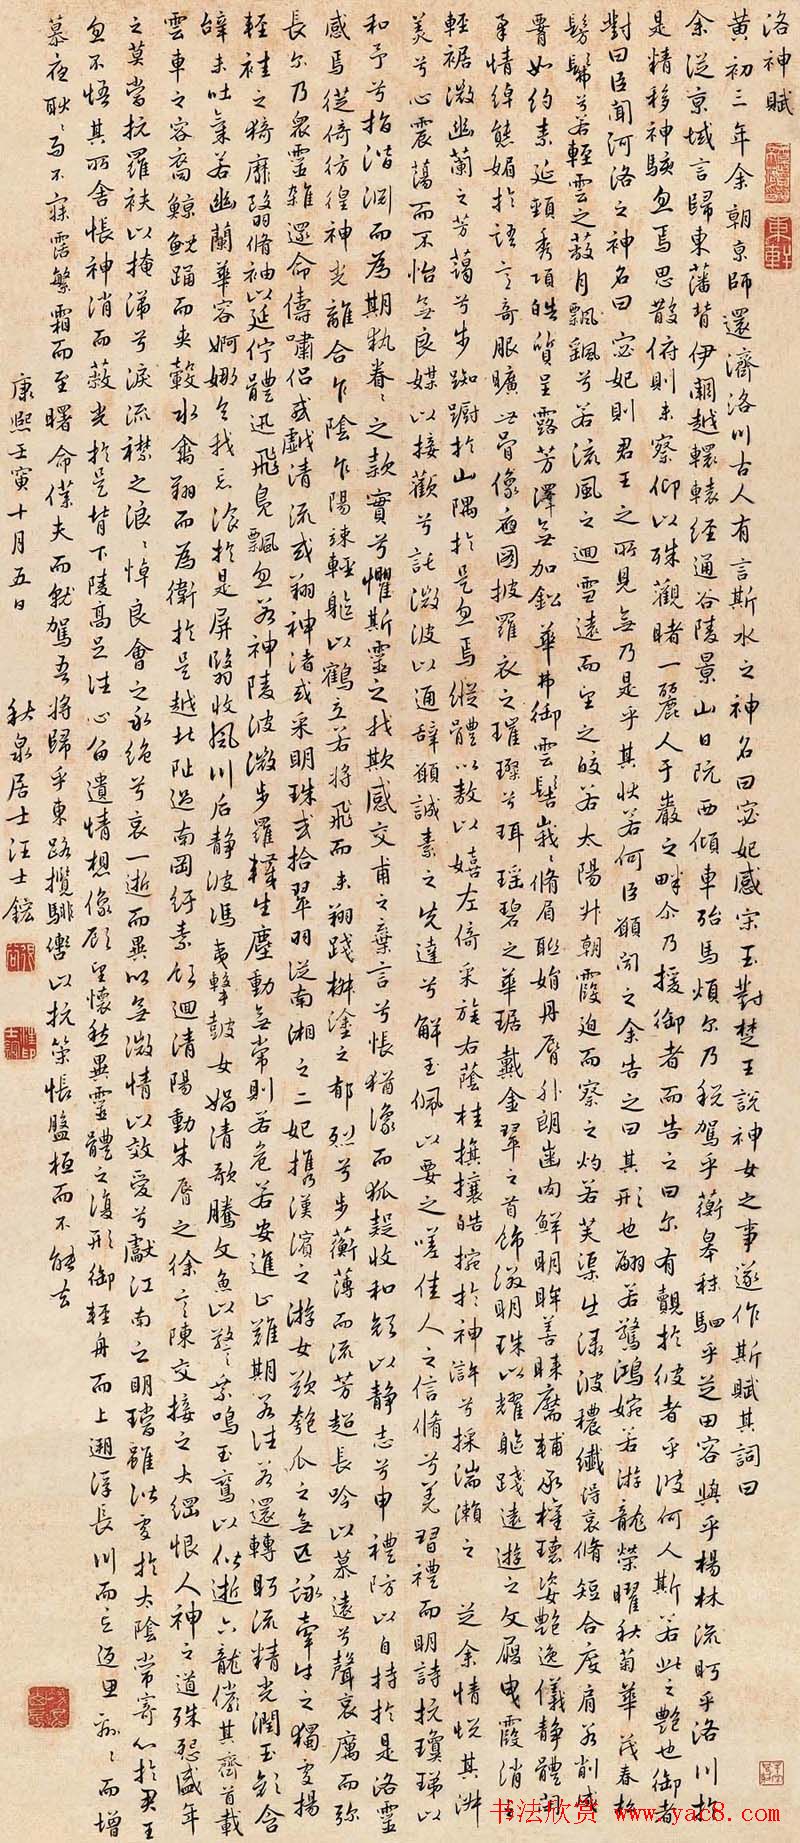 洛神賦
黃初三年余朝京師還濟洛川古人有言斯水之神名曰宓妃感宋玉對楚王說神女之事遂作斯賦其詞曰
余從京域言歸東藩背伊闕越轘轅經通谷陵景山日既西傾車殆馬煩爾乃稅駕乎蘅皋秣駟乎芝田容與乎楊林流眄乎洛川於
是精移神駭忽焉思散俯則未察仰以殊觀睹一麗人于巖之畔尒乃援御者而告之曰尔有覿於彼者乎彼何人斯若此之艷也御者
對曰臣聞河洛之神名曰宓妃則君王之所見無乃是乎其狀若何臣願聞之余告之曰其形也翩若驚鴻婉若游龍榮曜秋菊華茂春松
髣髴兮若輕雲之蔽月飄颻兮若流風之迴雪遠而望之皎若太陽升朝霞迫而察之灼若芙渠出淥波穠纖得衷脩短合度肩若削成
腰如約素延頸秀項皓質呈露芳澤無加鉛華弗御雲髻峩〻脩眉聯娟丹脣外朗齒內鮮明眸善睞靨輔承權瓌姿艷逸儀靜體閑
柔情綽態媚於語言奇服曠世骨像應圖披羅衣之璀璨兮珥瑤碧之華琚戴金翠之首飾綴明珠以耀軀踐遠遊之文履曳霧綃之
輕裾微幽蘭之芳藹兮步踟躕於山隅於是忽焉縱體以敖以嬉左倚采旄右蔭桂旗攘皓捥於神滸兮採湍瀨之芝余情悅其淑
美兮心震蕩而不怡無良媒以接歡兮託微波以通辭願誠素之先達兮解玉佩以要之嗟佳人之信脩兮羌習禮而明詩抗瓊珶以
和予兮指潛淵而為期執眷〻之款實兮懼斯靈之我欺感交甫之棄言兮悵猶豫而狐疑收和顏以靜志兮申禮防以自持於是洛靈
感焉徙倚彷徨神光離合乍陰乍陽竦輕軀以鶴立若將飛而未翔踐椒塗之郁烈兮步蘅薄而流芳超長吟以慕遠兮聲哀厲而彌
長尔乃衆靈雜遝命儔嘯侶或戲清流或翔神渚或采明珠或拾翠羽從南湘之二妃攜漢濱之游女歎匏瓜之無匹詠牽牛之獨處揚
輕袿之猗靡翳脩袖以延佇體迅飛鳧飄忽若神陵波微步羅韈生塵動無常則若危若安進止難期若往若還轉眄流精光潤玉顏含
辭未吐氣若幽蘭華容婀娜令我忘飡於是屏翳收風川后靜波馮夷擊鼓女媧清歌騰文魚以警乘鳴玉鸞以偕逝六龍儼其齊首載
雲車之容裔鯨鯢踊而夾轂水禽翔而為衛於是越北阯過南岡紆素領迴清陽動朱脣之徐言陳交接之大綱恨人神之道殊怨盛年
之莫當抗羅袂以掩涕兮淚流襟之浪〻悼良會之永絕兮哀一逝而異以無微情以效愛兮獻江南之明璫雖潛處於太陰常寄心於君王
忽不悟其所舍悵神消而蔽光於是背下陵高足往心留遺情想像顧望懷愁冀靈體之復形御輕舟而上遡浮長川而忘返思緜〻而增
慕夜耿〻而不寐霑繁霜而至曙命僕夫而就駕吾將歸乎東路攬騑轡以抗策悵盤桓而不能去
康熙壬寅十月五日
秋泉居士汪士鋐
東軒
书法欣赏 www.yac8.com